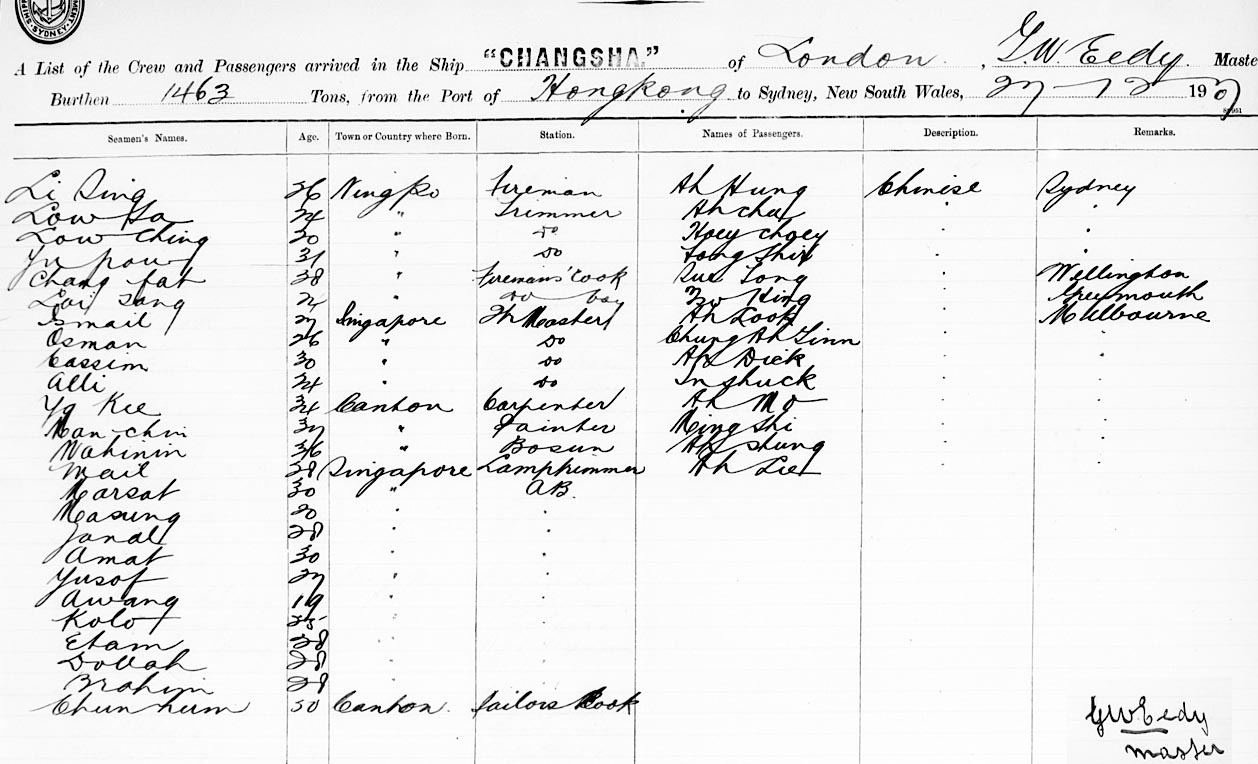 SYDNEY
A List of the Crew and Passengers arrived in the Ship "CHANGSHA." of London, G.W. Eedy. Maste
Burthen 1463 Tons, from the Port of Hongkong to Sydney, New South Wales, 27-12 1907
Seamen's Names. Age. Town or Country where Born. Station. Names of Passengers. Description. Remarks.
Li Sing 26 Ningpo Fireman Ah Hung Chinese Sydney
Low 24 " Trimmer Ah
Low Ching 20 " Do Hoey Choey
31 " Do
Chang fat 38 " Fireman's Cook Wellington
Lai Sang 24 " Do boy Greymouth
Ismail 27 Singapore Ah Melbourne
Osman 26 " Do Chung Ah Linn
Cassim 30 " Do Ah Dick
Alli 24 " Do
Kee 34 Canton Carpenter Ah Mo
37 " Painter Ming Shi
Wahinin 36 " Bosun Ah
Mail 28 Singapore Lamptrimmer Ah
Marsat 30 " AB.
Masung 20
28
Amat 30
Yusof 27
Awang 19
Kolo 25
Etam 28
Dollah 28
Brahim 28
Chun 30 Canton. Sailors Cook
GW Eedy
master